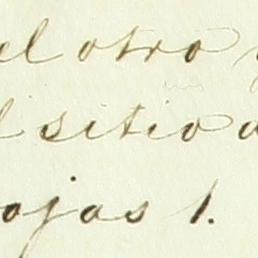 el otro y
l sitio a
ojas 1.